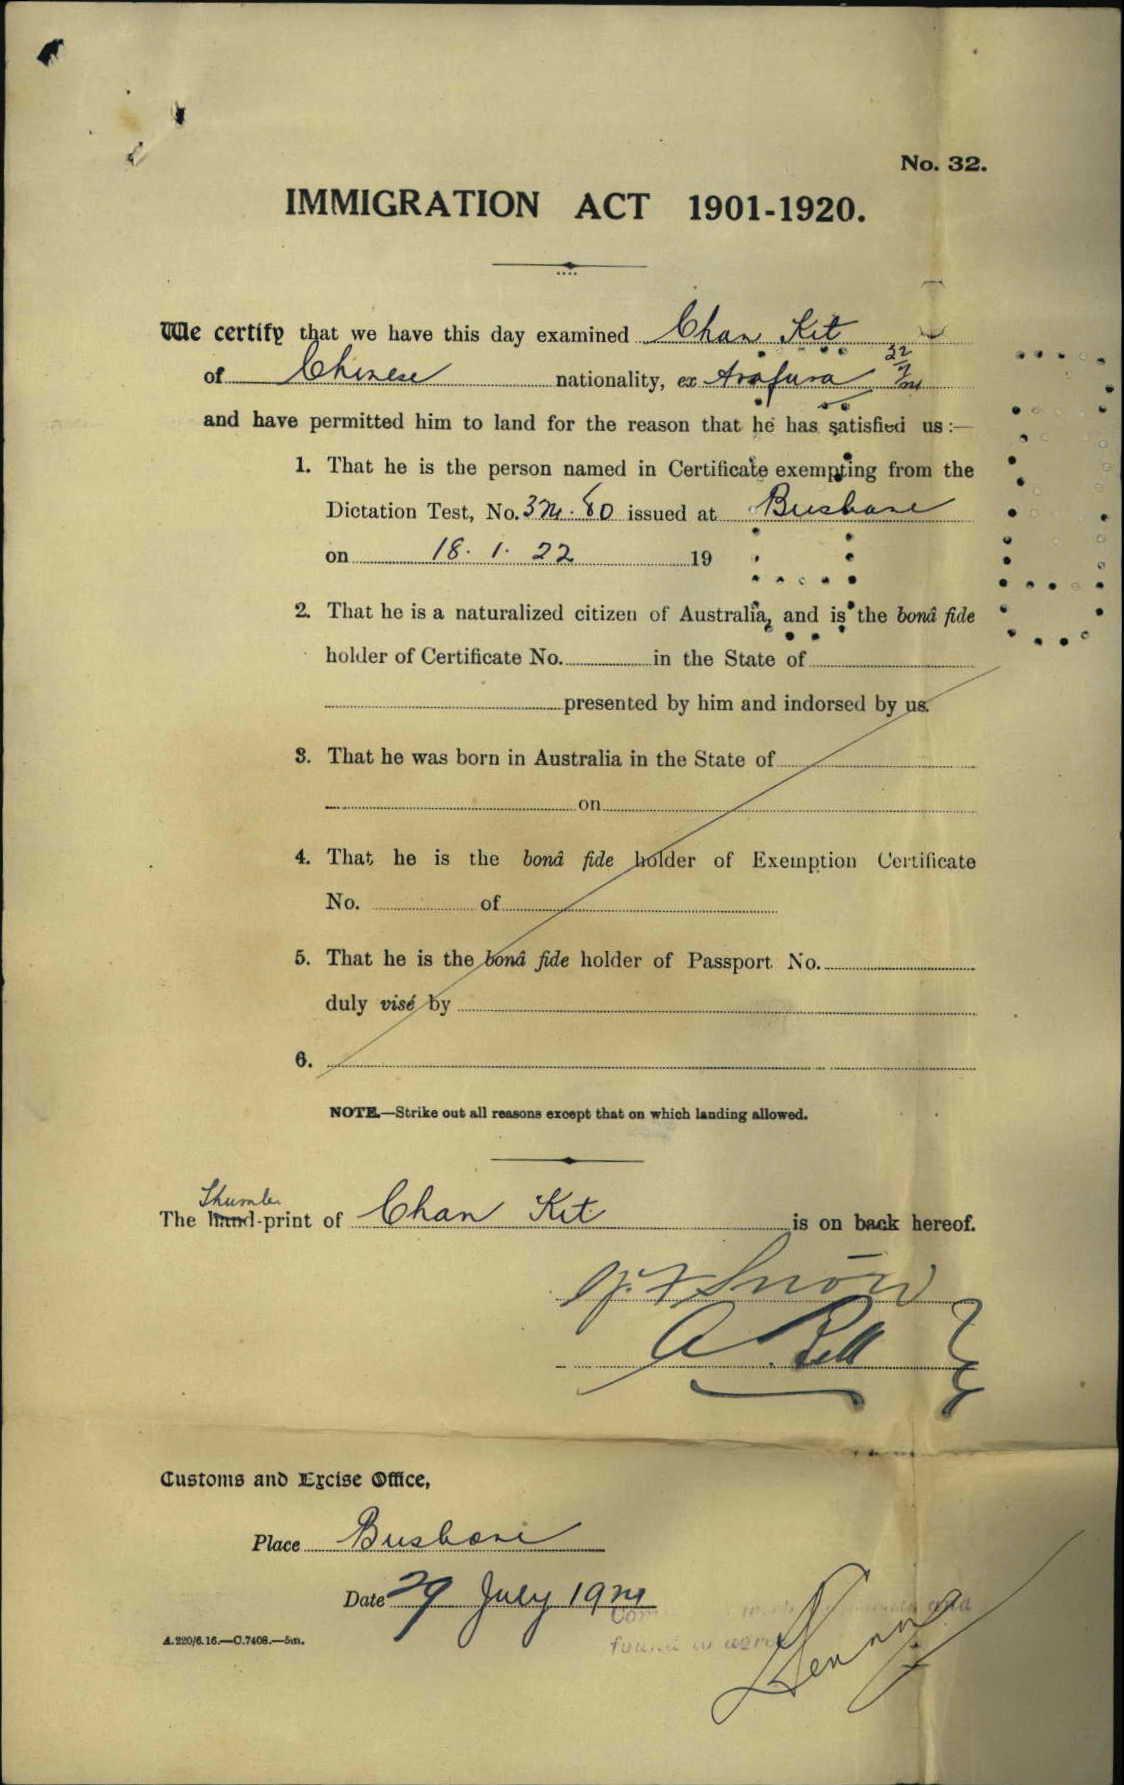 No. 32.
IMMIGRATION ACT 1901-1920.
We certify that we have this day examined Chan Kit
of Chinese nationality, ex Arafura
and have permitted him to land for the reason that he has satisfied us :—
1. That he is the person named in Certificate exempting from the
Dictation Test, No. issued at Brisbane
on 18. 1. 22 19
2. That he is a naturalized citizen of Australia, and is the bonâ fide
holder of Certificate No. in the State of
presented by him and indorsed by us.
3. That he was born in Australia in the State of
on
4. That he is the bonâ fide holder of Exemption Certificate
No. of
5. That he is the bonâ fide holder of Passport No.
duly visé by
6.
NOTE.—Strike out all reasons except that on which landing allowed.
Thumb
The hand-print of Chan Kit is on back hereof.
Snow
A. Bell
Customs and Excise Office,
Place Brisbane
Date 29 July 1924
found
A.220/6.16.—C.7408.—5m.